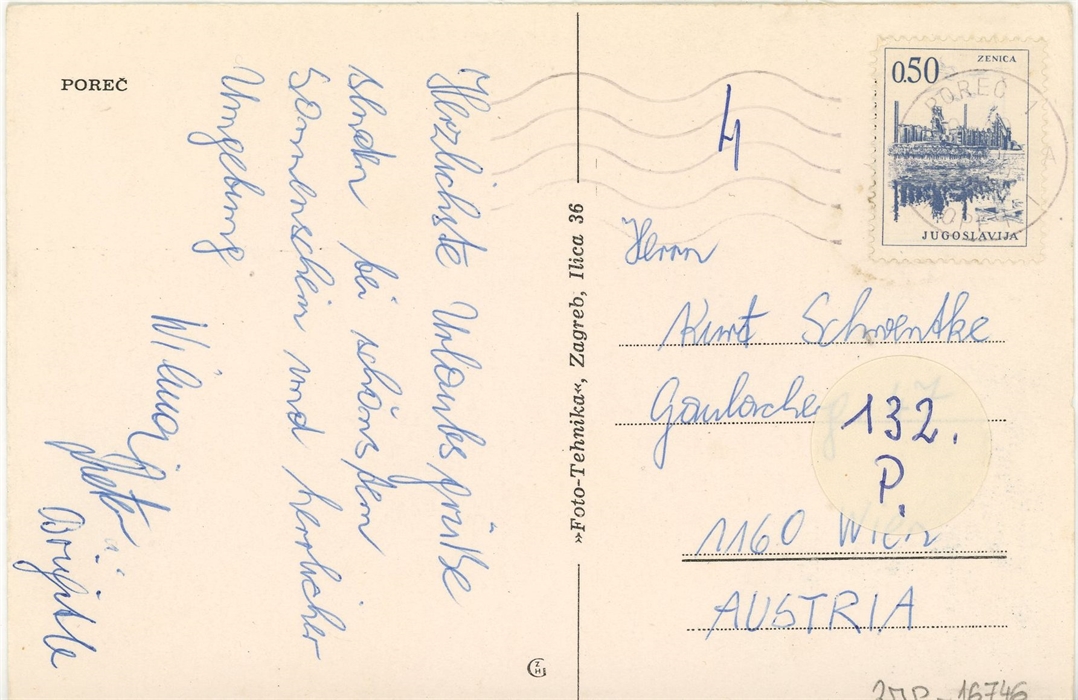 POREČ
Herzlichste Urlaubsgrüße
senden bei schönstem
Sonnenschein und herrlicher
Umgebung
Wilma
Peter
u.
Brigitte
»Foto-Tehnika«, Zagreb, Ilica 36
4
0.50
ZENICA
JUGOSLAVIJA
POREČ 1
Herrn
Kurt Schwentke
132.
P.
1160 Wien
AUSTRIA